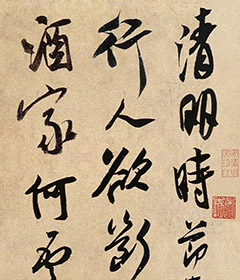 清明時節
行人欲斷
酒家何處